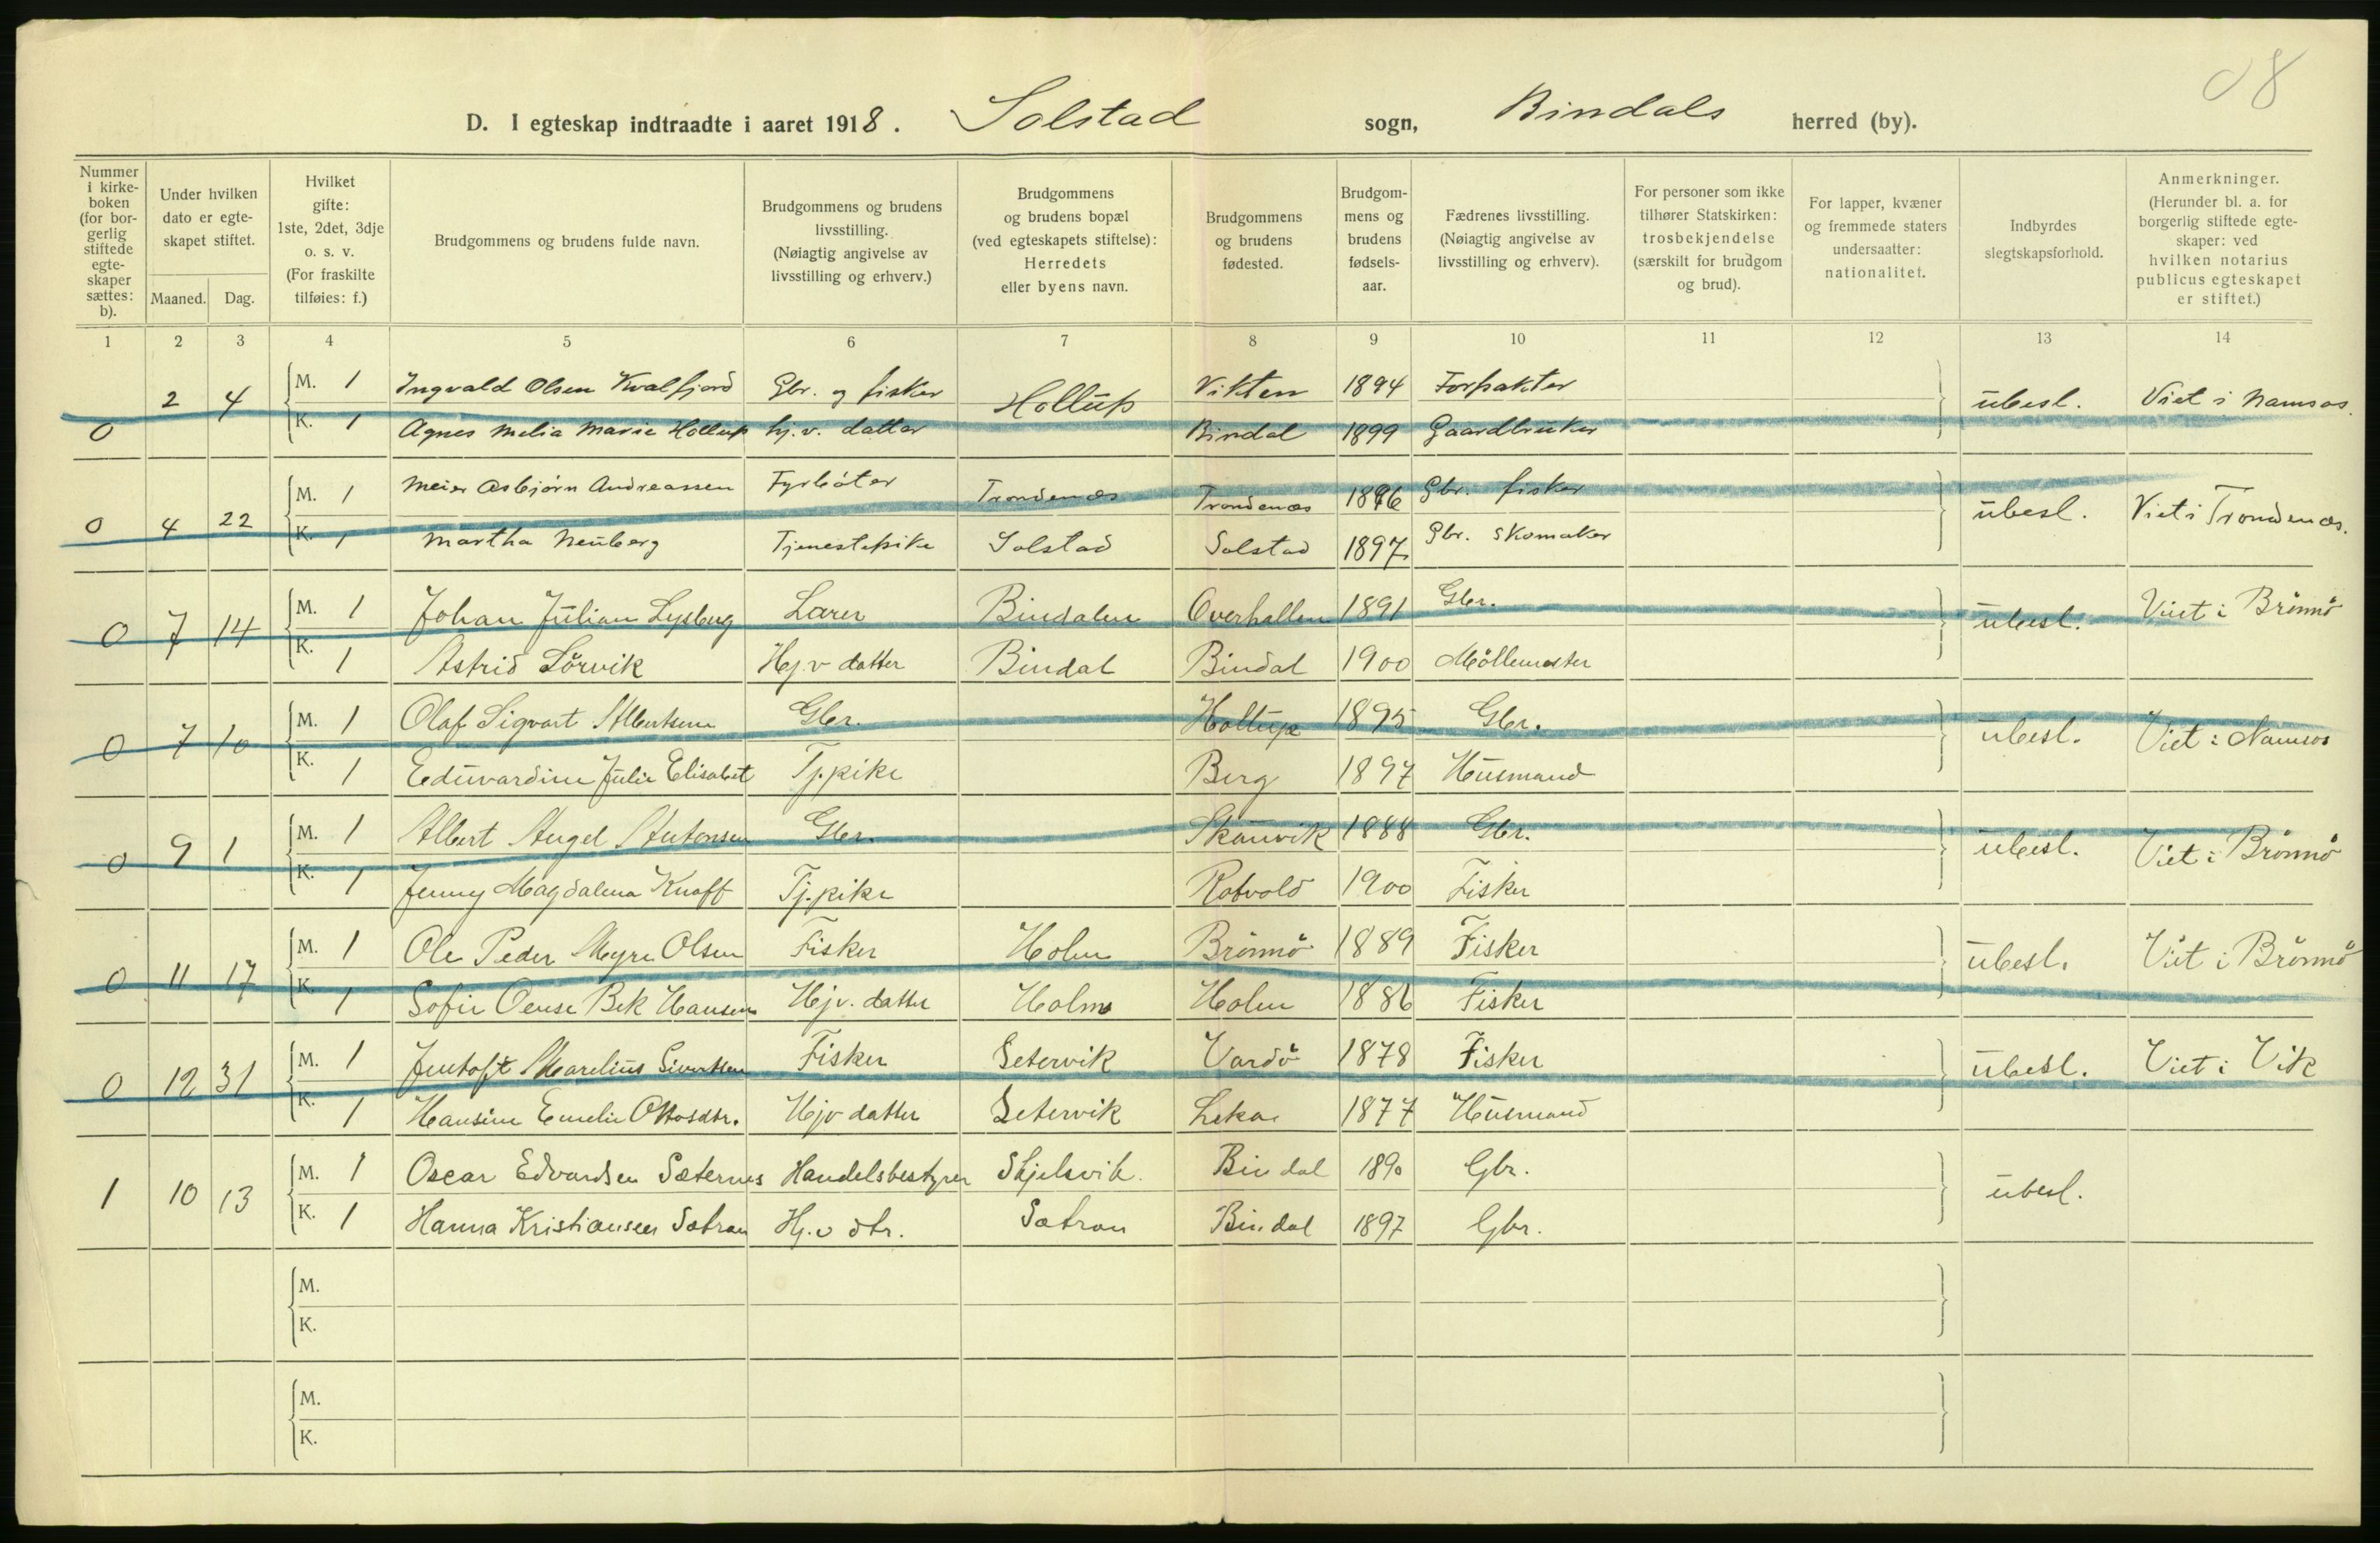 08
D. I egteskap indtraadte i aaret 1918. Solstad sogn, Bindals herred (by).
Nummer i kirkeboken (for borgerlig stiftede egteskaper sættes: b).
Under hvilken dato er egteskapet stiftet.
Maaned. Dag.
Hvilket gifte: 1ste, 2det, 3dje o. s. v. (For fraskilte tilføies: f.)
Brudgommens og brudens fulde navn.
Brudgommens og brudens livsstilling. (Nøiagtig angivelse av livsstilling og erhverv.)
Brudgommens og brudens bopæl (ved egteskapets stiftelse): Herredets eller byens navn.
Brudgommens og brudens fødested.
Brudgommens og brudens fødselsaar.
Fædrenes livsstilling. (Nøiagtig angivelse av livsstilling og erhverv).
For personer som ikke tilhører Statskirken: trosbekjendelse (særskilt for brudgom og brud).
For lapper, kvæner og fremmede staters undersaatter: nationalitet.
Indbyrdes slegtskapsforhold.
Anmerkninger. (Herunder bl. a. for borgerlig stiftede egteskaper: ved hvilken notarius publicus egteskapet er stiftet.)
1 2 3 4 5 6 7 8 9 10 11 12 13 14
0 2 4 M. 1 Ingvald Olsen Kvalfjord Gbr. og fisker Hollup Vikten 1894 Forpakter ubesl. Viet i Namsos.
K. 1 Agnes Melia Marie Hollup hj.v. datter Bindal 1899 Gaardbruker
0 4 22 M. 1 Meier Asbjørn Andreassen Fyrbøter Trondenæs Trondenæs 1896 Gbr. fisker ubesl. Viet i Trondenæs.
K. 1 Martha Neuberg Tjenestepike Solstad Solstad 1897 Gbr. Skomaker
0 7 14 M. 1 Johan Julian Lysberg Lærer Bindalen Overhallen 1891 Gbr. ubesl. Viet i Brönnö
K. 1 Astrid Lörvik Hj.v datter Bindal Bindal 1900 Möllemester
0 7 10 M. 1 Olaf Sigvart Albertsen Gbr. Holtup 1895 Gbr. ubesl. Viet i Namsos
K. 1 Eduvardine Julie Elisabet Tj.pike Berg 1897 Husmand
0 9 1 M. 1 Albert Angel Antonsen Gbr. Skauvik 1888 Gbr. ubesl. Viet i Brönnö
K. 1 Jenny Magdalena Knoff Tj.pike Rotvold 1900 Fisker
0 11 17 M. 1 Ole Peder Myre Olsen Fisker Holm Brönnö 1889 Fisker ubesl. Viet i Brönnö
K. 1 Sofie Oense Bek Hansen Hjv. datter Holm Holm 1886 Fisker
0 12 31 M. 1 Jentoft Marelius Sivertsen Fisker Setervik Vardö 1878 Fisker ubesl. Viet i Vik
K. 1 Hansine Emelie Ottosdtr. Hjv datter Setervik Leka 1877 Husmand
1 10 13 M. 1 Oscar Edvardsen Sæternes Handelsbestyrer Skjelsvik. Bindal 1890 Gbr. ubesl.
K. 1 Hanna Kristiansen Sætran Hj.v dtr. Sætran Bindal 1897 Gbr.
M.
K.
M.
K.